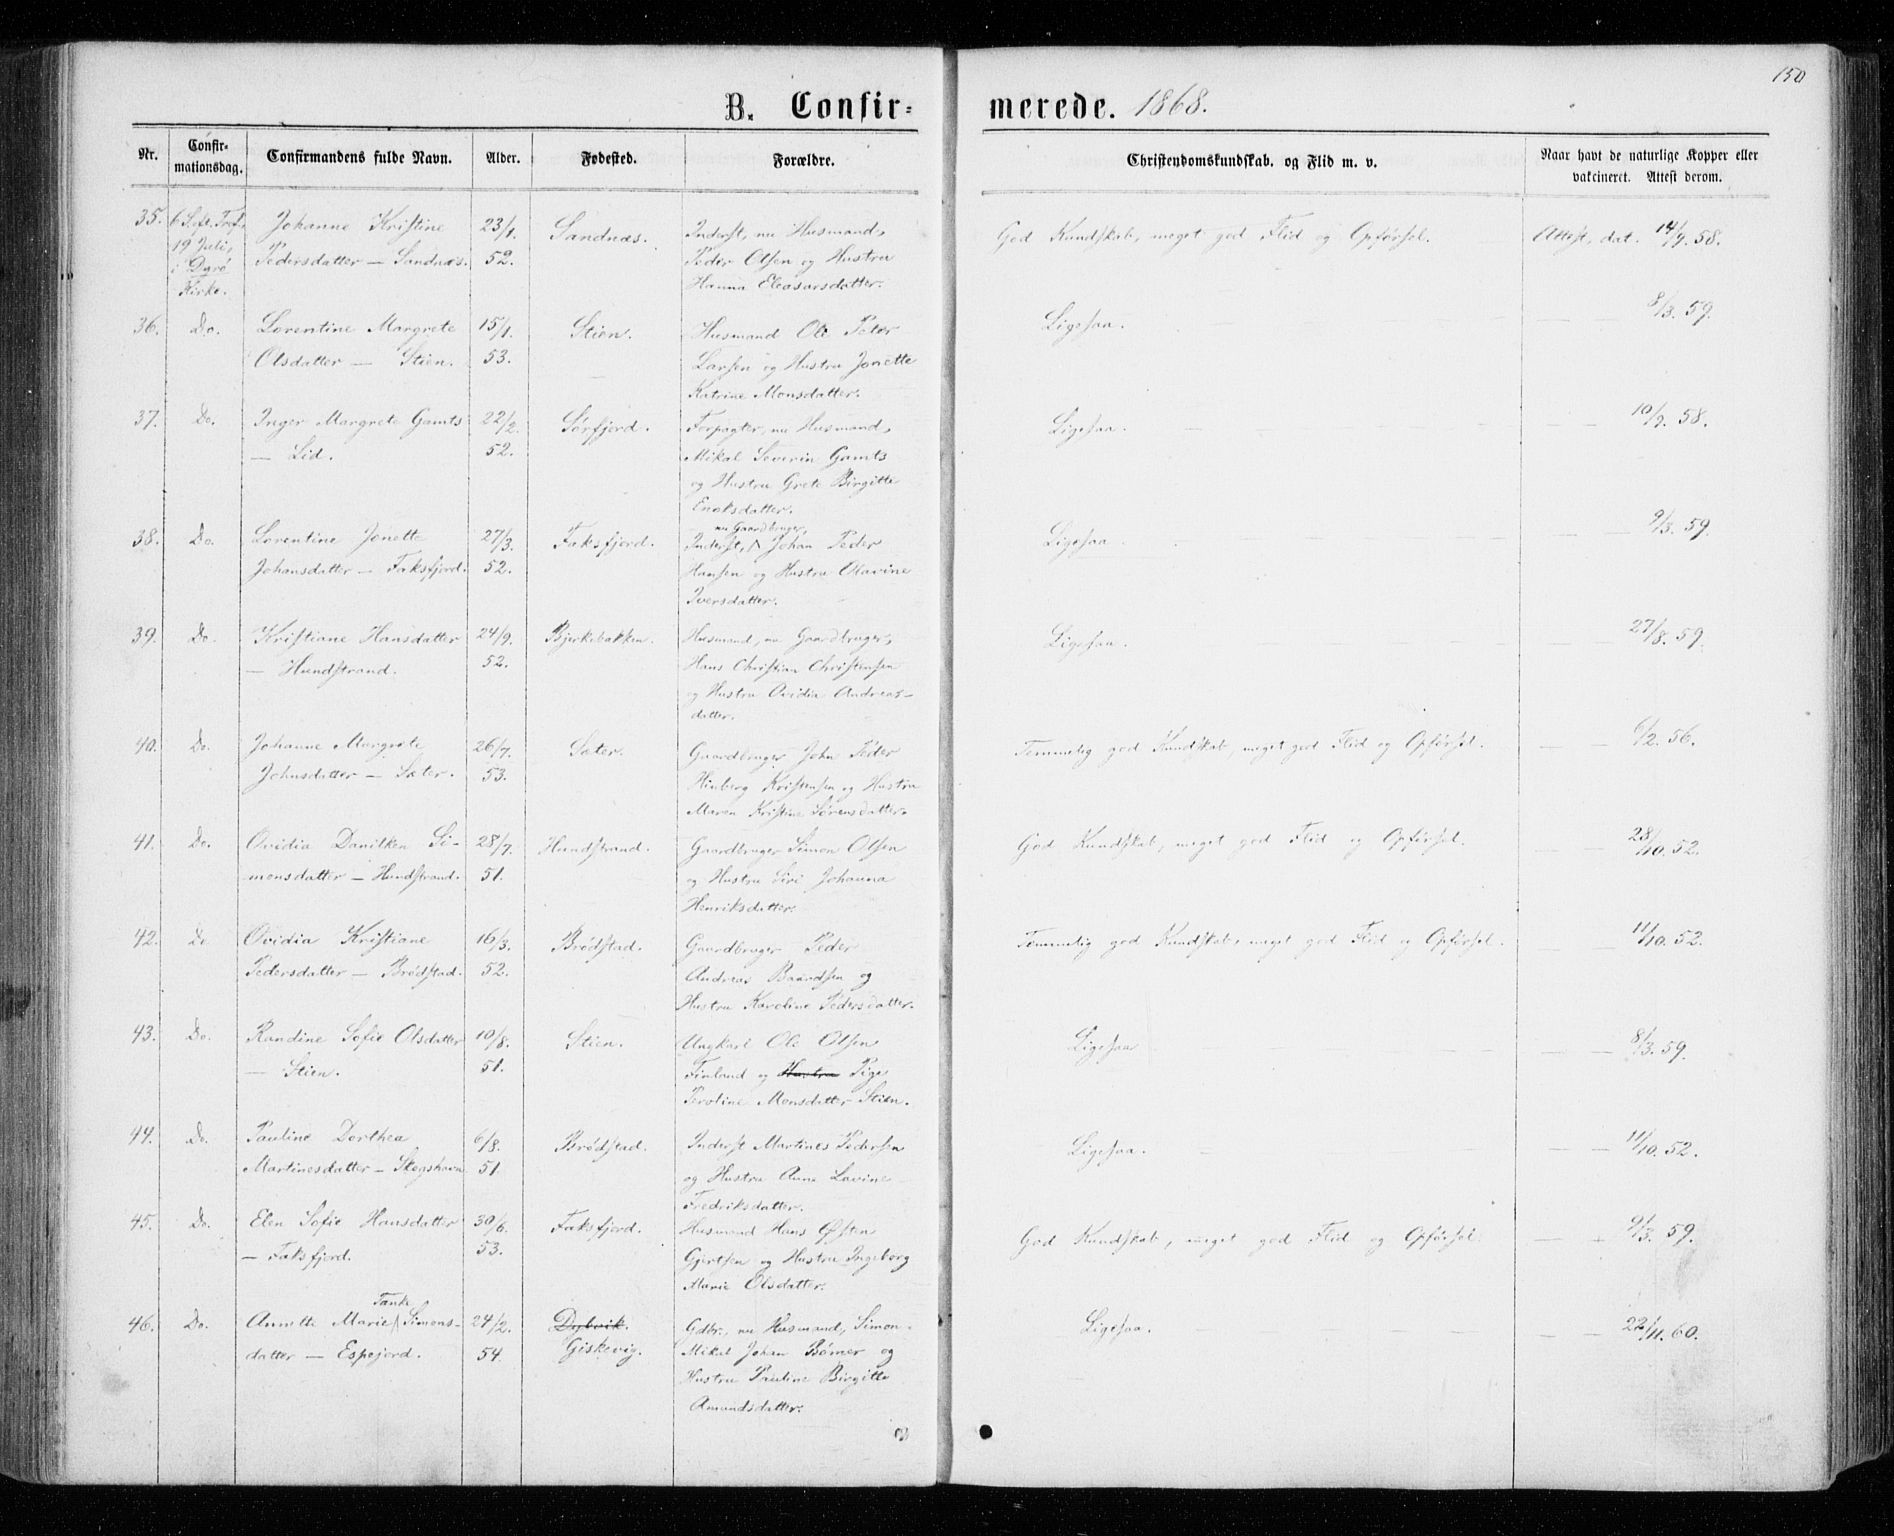 150
B. Confir-
merede. 1868.
Nr.
Confir-
mationsdag.
Confirmandens fulde Navn.
Alder.
Fødested.
Forældre.
Christendomskundskab. og Flid m. v.
Naar havt de naturlige Kopper eller
vakcineret. Attest derom.
35. 6 S. eft. Tref. Johanne Kristine 23/1. Sandnæs. Inderst, nu Husmand, God Kundskab, meget god Flid og Opførsel. Attest, dat. 14/9. 58.
19 Juli, Pedersdatter — Sandnæs. 52. Peder Olsen og Hustru
i Dyrø Hanna Eleasarsdatter.
Kirke.
36. Do. Lorentine Margrete 15/1. Stien. Husmand Ole Peter Ligesaa. — — 8/3. 59.
Olsdatter — Stien. 53. Larsen og Hustru Jonette
Katrine Monsdatter.
37. Do. Inger Margrete Gamts 22/2. Sørfjord. Forpagter, nu Husmand, Ligesaa. — — 10/9. 58.
— Lid. 52. Mikal Severin Gamts
og Hustru Grete Birgitte
Enoksdatter.
38. Do. Lorentine Jonette 27/3. Faksfjord. Inderst, nu Gaardbruger, Johan Peder Ligesaa. — — 9/3. 59.
Johansdatter — Faksfjord. 52. Hansen og Hustru Olavine
Iversdatter.
39. Do. Kristiane Hansdatter 24/9. Bjerkebakken. Husmand, nu Gaardbruger, Ligesaa. — — 27/8. 59.
— Hundstrand. 52. Hans Christian Christensen
og Hustru Ovidia Andreas-
datter.
40. Do. Johanne Margrete 26/7. Sæter. Gaardbruger John Peder Temmelig god Kundskab, meget god Flid og Opførsel. — — 6/2. 56.
Johnsdatter — Sæter. 53. Hinberg Kristensen og Hustru
Maren Kristine Sørensdatter.
41. Do. Ovidia Danilken Si- 28/7. Hundstrand. Gaardbruger Simon Olsen God Kundskab, meget god Flid og Opførsel. — — 28/10. 52.
monsdatter — Hundstrand. 51. og Hustru Siri Johanna
Henriksdatter.
42. Do Ovidia Kristiane 16/3. Brødstad. Gaardbruger Peder Temmelig god Kundskab, meget god Flid og Opførsel. — — 11/10. 52.
Pedersdatter — Brødstad. 52. Andreas Baardsen og
Hustru Karoline Pedersdatter.
43. Do. Randine Sofie Olsdatter 10/8. Stien. Ungkarl Ole Olsen Ligesaa — — 8/3. 59.
— Stien. 51. Finland og Hustru Pige
Peroline Monsdatter Stien.
44. Do. Pauline Dorthea 6/8. Brødstad. Inderst Martines Pedersen Ligesaa. — — 11/10. 52.
Martinesdatter — Skogshavn 51. og Hustru Anne Lovine
Fredriksdatter.
45. Do. Elen Sofie Hansdatter 30/6. Faksfjord. Husmand Hans Østen God Kundskab, meget god Flid og Opførsel. — — 9/3. 59.
— Faksfjord. 53. Gjertsen og Hustru Ingeborg
Marie Olsdatter.
46. Do. Annette Marie Tanke Simons- 24/2. Dybvik. Gdbr., nu Husmand, Simon Ligesaa. — — 22/11. 60.
datter — Espejord. 54. Giskevig. Mikal Johan Bømer og
Hustru Pauline Birgitte
Amundsdatter.